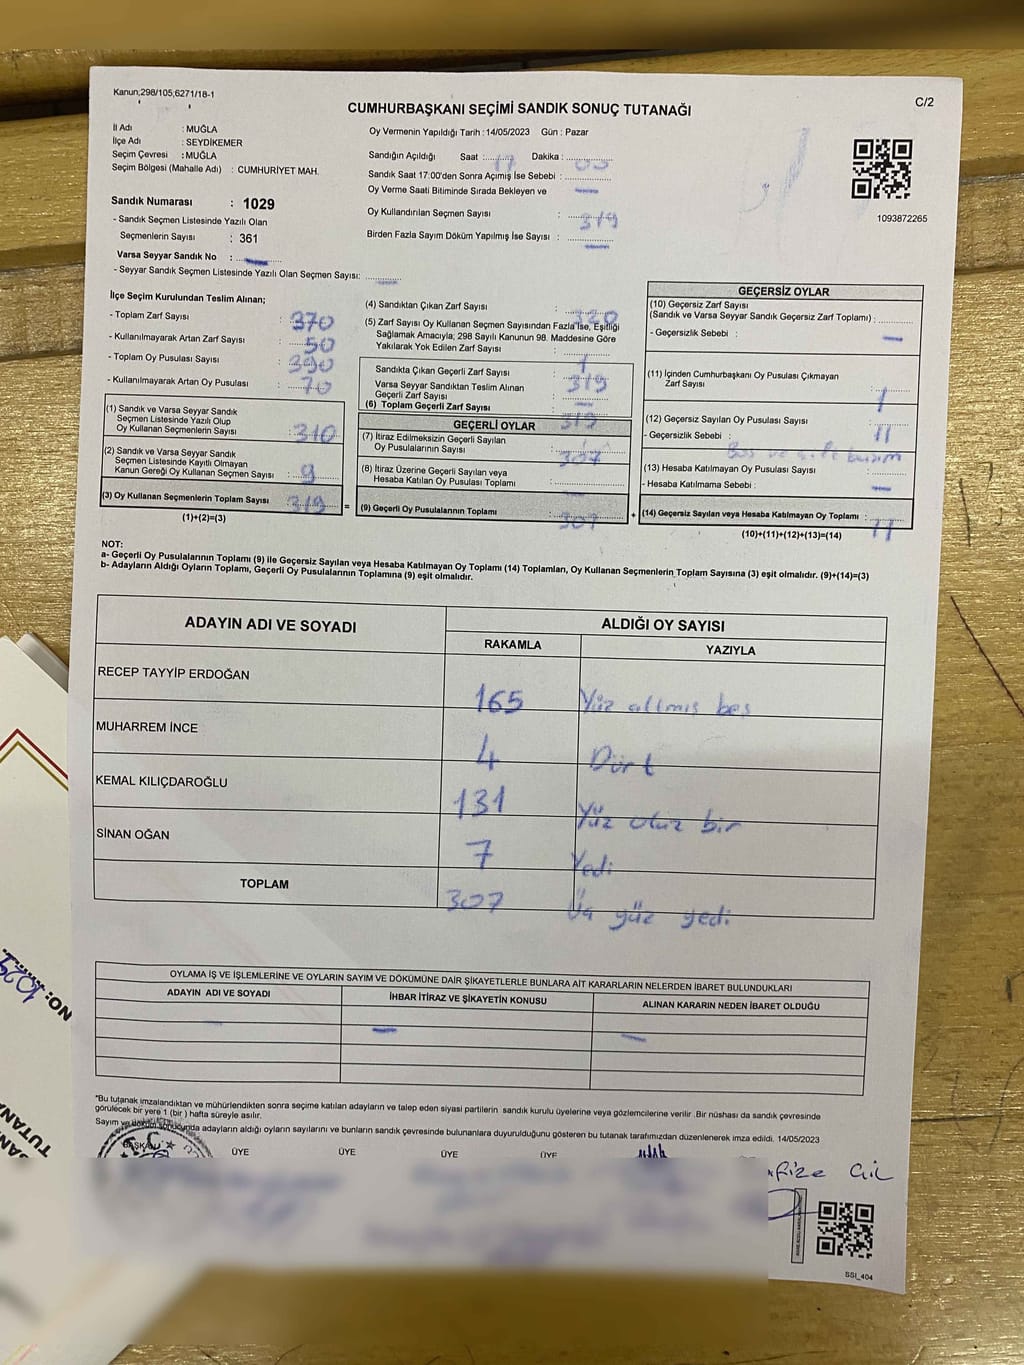 Kanun;298/105,6271/18-1
C/2
CUMHURBAŞKANI SEÇİMİ SANDIK SONUÇ TUTANAĞI
İl Adı : MUĞLA
İlçe Adı : SEYDİKEMER
Seçim Çevresi : MUĞLA
Seçim Bölgesi (Mahalle Adı) : CUMHURİYET MAH.
Sandık Numarası : 1029
- Sandık Seçmen Listesinde Yazılı Olan
Seçmenlerin Sayısı : 361
Varsa Seyyar Sandık No :
- Seyyar Sandık Seçmen Listesinde Yazılı Olan Seçmen Sayısı:
Oy Vermenin Yapıldığı Tarih : 14/05/2023 Gün : Pazar
Sandığın Açıldığı Saat : 17 Dakika : 00
Sandık Saat 17:00'den Sonra Açmış İse Sebebi :
Oy Verme Saati Bitiminde Sırada Bekleyen ve
Oy Kullandırılan Seçmen Sayısı : 319
Birden Fazla Sayım Döküm Yapılmış İse Sayısı :
1093872265
İlçe Seçim Kurulundan Teslim Alınan;
- Toplam Zarf Sayısı : 370
- Kullanılmayarak Artan Zarf Sayısı : 50
- Toplam Oy Pusulası Sayısı : 390
- Kullanılmayarak Artan Oy Pusulası : 70
(1) Sandık ve Varsa Seyyar Sandık
Seçmen Listesinde Yazılı Olup
Oy Kullanan Seçmenlerin Sayısı : 310
(2) Sandık ve Varsa Seyyar Sandık
Seçmen Listesinde Kayıtlı Olmayan
Kanun Gereği Oy Kullanan Seçmen Sayısı : 9
(3) Oy Kullanan Seçmenlerin Toplam Sayısı 319
(1)+(2)=(3)
=
(4) Sandıktan Çıkan Zarf Sayısı : 320
(5) Zarf Sayısı Oy Kullanan Seçmen Sayısından Fazla İse, Eşitliği
Sağlamak Amacıyla; 298 Sayılı Kanunun 98. Maddesine Göre
Yakılarak Yok Edilen Zarf Sayısı : 1
Sandıkta Çıkan Geçerli Zarf Sayısı : 319
Varsa Seyyar Sandıktan Teslim Alınan
Geçerli Zarf Sayısı :
(6) Toplam Geçerli Zarf Sayısı : 319
GEÇERLİ OYLAR
(7) İtiraz Edilmeksizin Geçerli Sayılan
Oy Pusulalarının Sayısı : 307
(8) İtiraz Üzerine Geçerli Sayılan veya
Hesaba Katılan Oy Pusulası Toplamı :
(9) Geçerli Oy Pusulalarının Toplamı : 307
+
GEÇERSİZ OYLAR
(10) Geçersiz Zarf Sayısı
(Sandık ve Varsa Seyyar Sandık Geçersiz Zarf Toplamı) :
- Geçersizlik Sebebi :
(11) İçinden Cumhurbaşkanı Oy Pusulası Çıkmayan
Zarf Sayısı : 1
(12) Geçersiz Sayılan Oy Pusulası Sayısı : 11
- Geçersizlik Sebebi :
(13) Hesaba Katılmayan Oy Pusulası Sayısı :
- Hesaba Katılmama Sebebi :
(14) Geçersiz Sayılan veya Hesaba Katılmayan Oy Toplamı : 11
(10)+(11)+(12)+(13)=(14)
NOT:
a- Geçerli Oy Pusulalarının Toplamı (9) ile Geçersiz Sayılan veya Hesaba Katılmayan Oy Toplamı (14) Toplamları, Oy Kullanan Seçmenlerin Toplam Sayısına (3) eşit olmalıdır. (9)+(14)=(3)
b- Adayların Aldığı Oyların Toplamı, Geçerli Oy Pusulalarının Toplamına (9) eşit olmalıdır.
ADAYIN ADI VE SOYADI ALDIĞI OY SAYISI
RAKAMLA YAZIYLA
RECEP TAYYİP ERDOĞAN 165 Yüz altmış beş
MUHARREM İNCE 4 Dört
KEMAL KILIÇDAROĞLU 131 Yüz otuz bir
SİNAN OĞAN 7 Yedi
TOPLAM 307 Üç yüz yedi
OYLAMA İŞ VE İŞLEMLERİNE VE OYLARIN SAYIM VE DÖKÜMÜNE DAİR ŞİKAYETLERLE BUNLARA AİT KARARLARIN NELERDEN İBARET BULUNDUKLARI
ADAYIN ADI VE SOYADI İHBAR İTİRAZ VE ŞİKAYETİN KONUSU ALINAN KARARIN NEDEN İBARET OLDUĞU
*Bu tutanak imzalandıktan ve mühürlendikten sonra seçime katılan adayların ve talep eden siyasi partilerin sandık kurulu üyelerine veya gözlemcilerine verilir .Bir nüshası da sandık çevresinde
görülecek bir yere 1 (bir ) hafta süreyle asılır.
Sayım ve döküm sonucunda adayların aldığı oyların sayılarını ve bunların sandık çevresinde bulunanlara duyurulduğunu gösteren bu tutanak tarafımızdan düzenlenerek imza edildi. 14/05/2023
BAŞKAN ÜYE ÜYE ÜYE ÜYE
GİL
SSI_404
NO: 1029
TUTANA